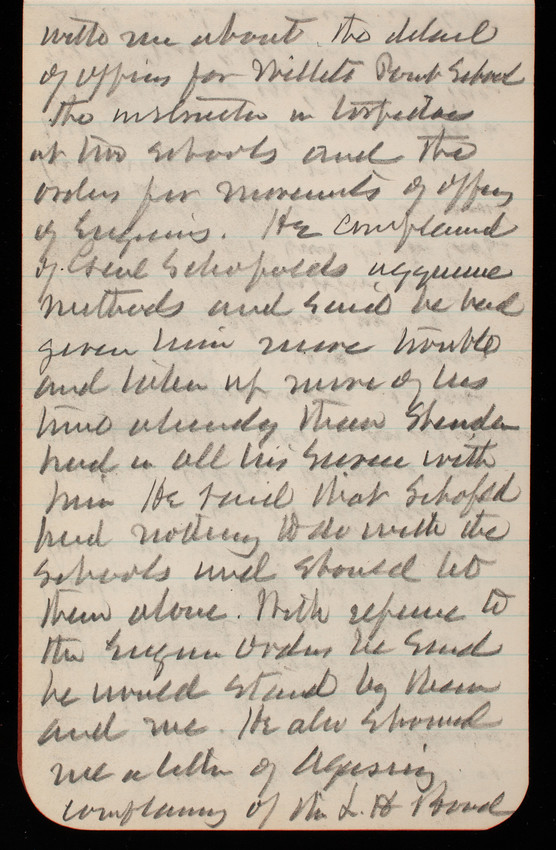 with me about the detail
of officers for Willets Point School
the instruction in torpedoes
at two schools and the
orders for movements of officers
of Engineers. He complained
of Genl Schofields aggressive
methods and said he had
given him more trouble
and taken up more of his
time already than Sheridan
had in all his service with
him He said that Schofield
had nothing to do with the
schools and should let
them alone. With reference to
the Engineer orders he said
he would stand by them
and me. He also showed
me a letter of
complaining of the L. H Board